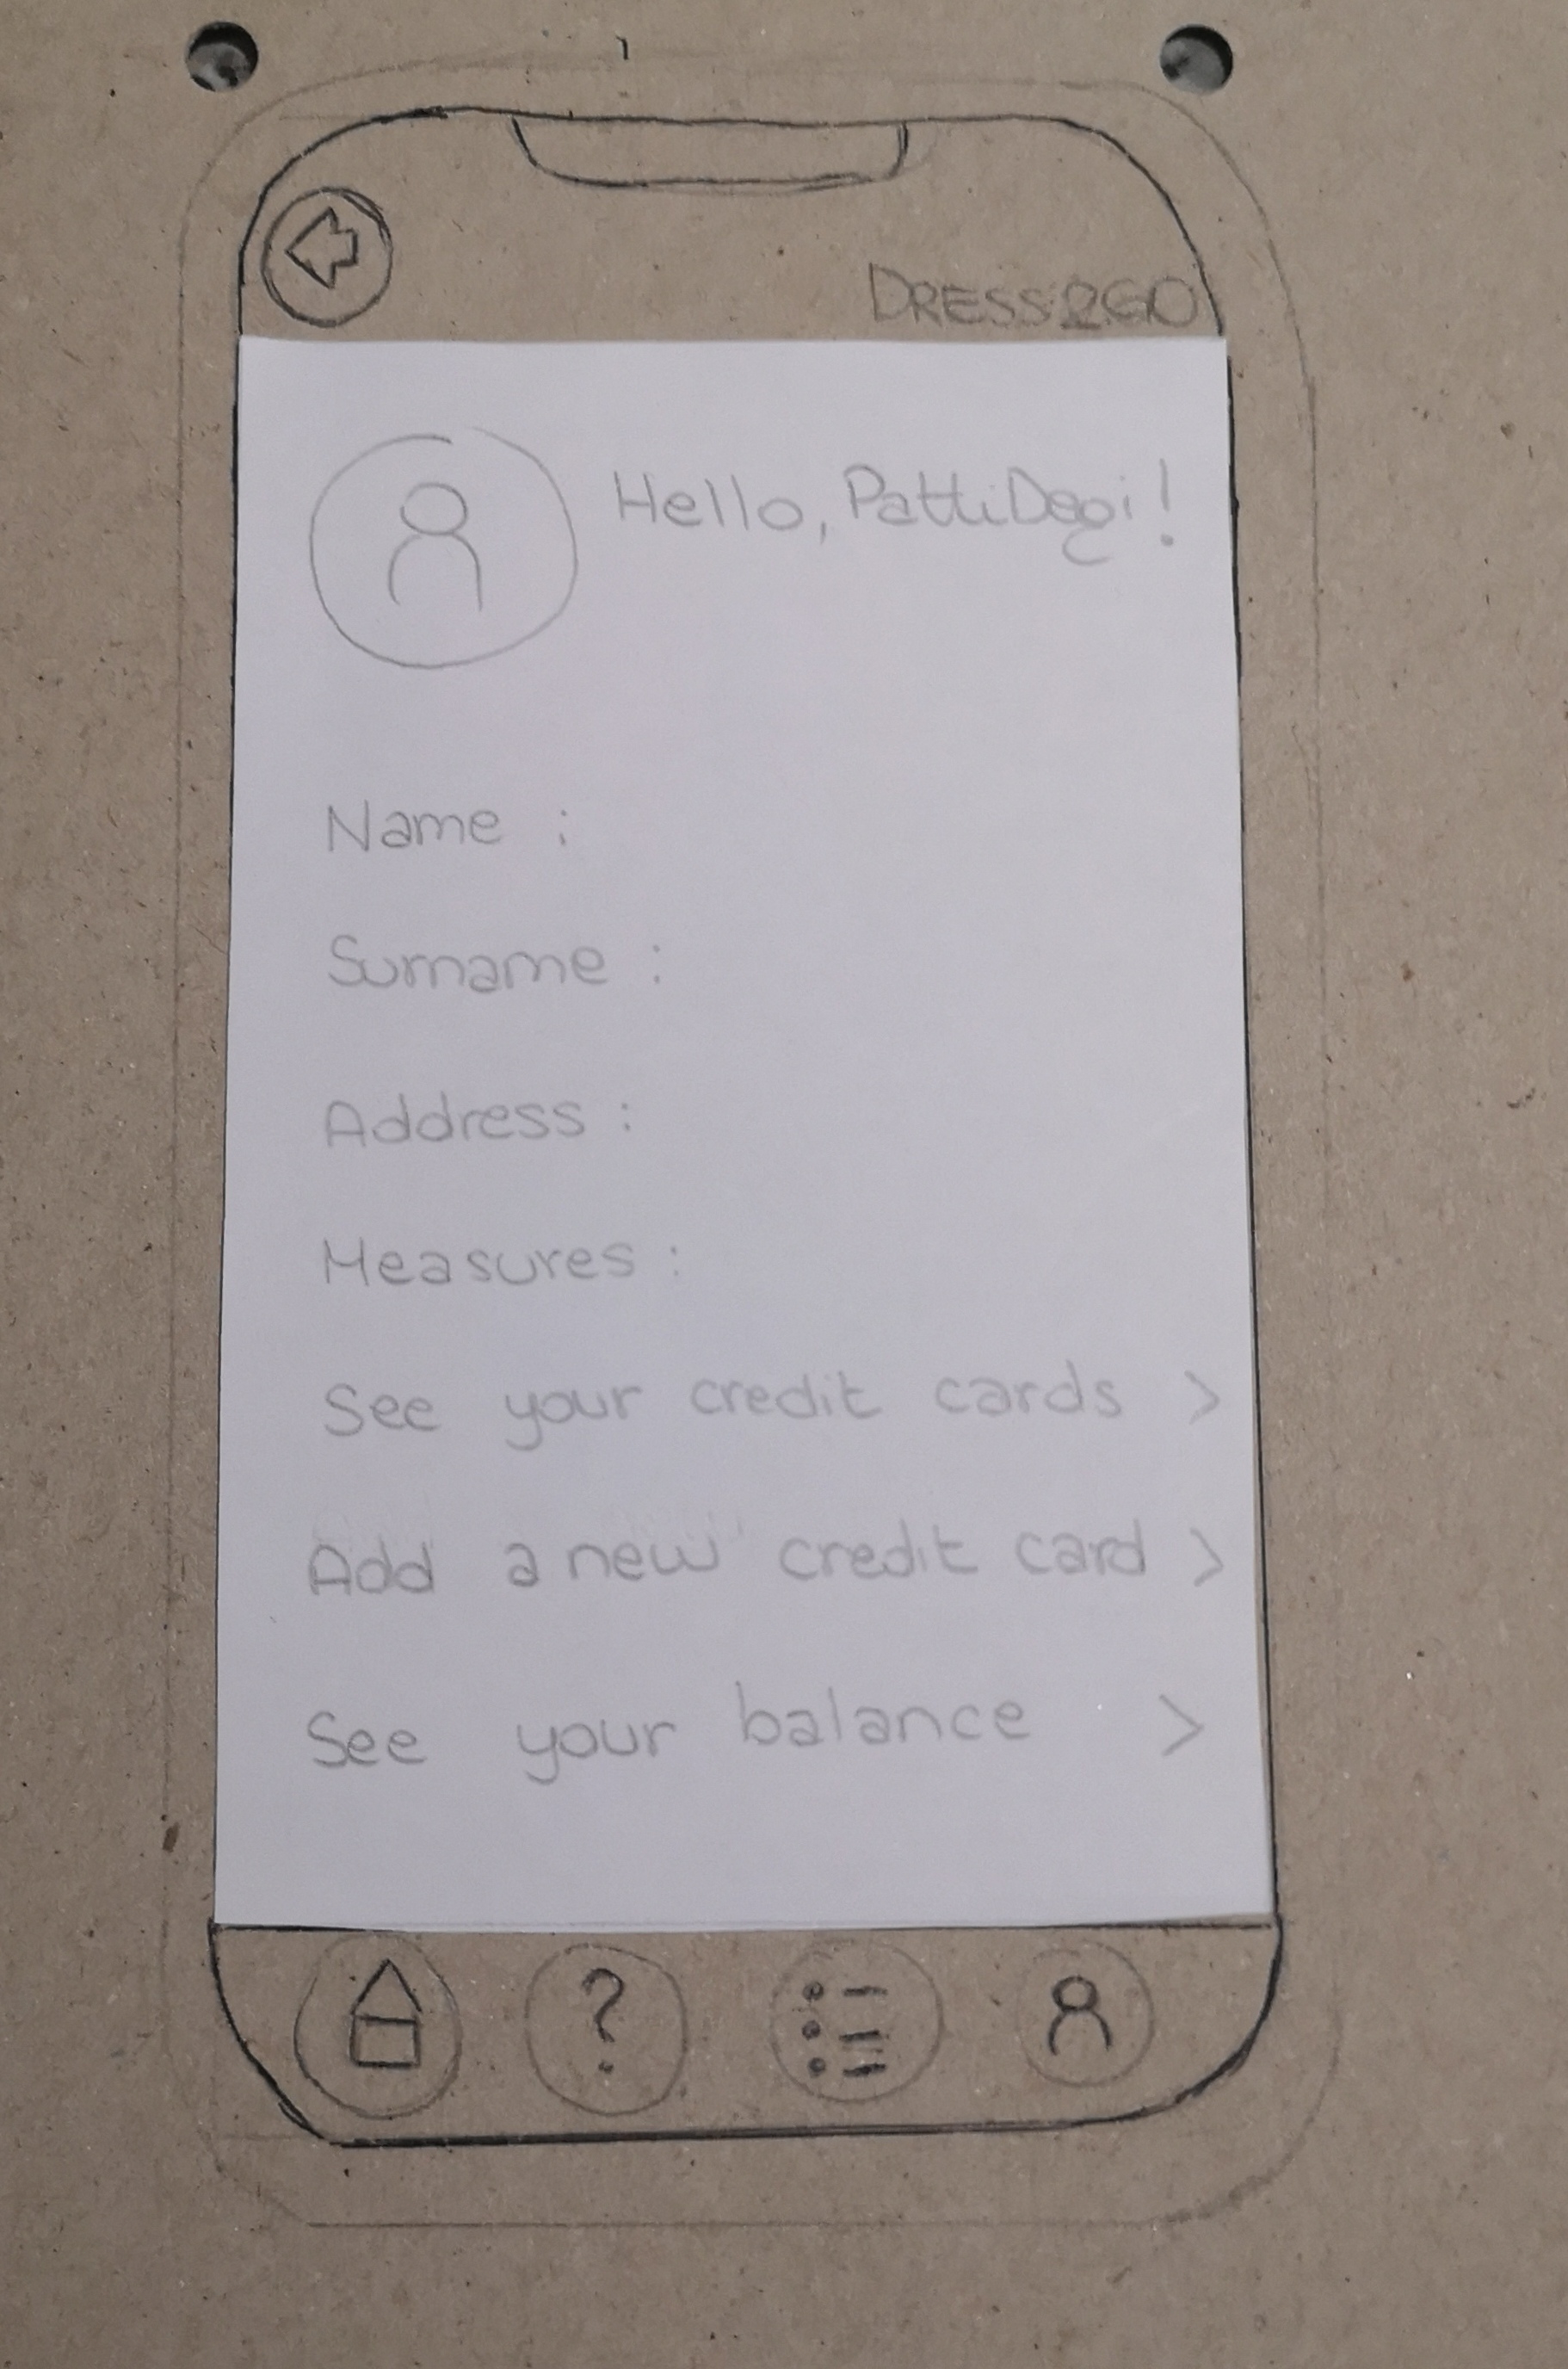 DRESS2GO
Hello, PattiDegi!
Name :
Surname :
Address :
Measures :
See your credit cards >
Add a new credit card >
See your balance >
?